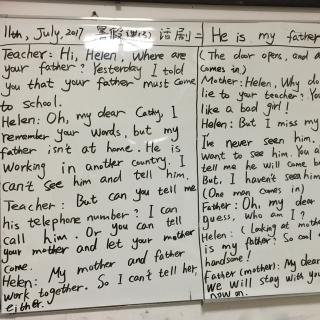 11th, July, 2017 暑假 话剧 = He is my father
Teacher: Hi, Helen, Where are
your father? Yesterday I told
you that your father must come
to school.
Helen: Oh, my dear Cathy, I
remember your words, but my
father isn't at home. He is
working in another country. I
can't see him and tell him.
Teacher: But can you tell me
his telephone number? I can
call him. Or you can tell
your mother and let your mother
come.
Helen: My mother and father
work together. So I can't tell her,
either.
(The door opens, and a
comes in)
Mother: Helen, Why do
lie to your teacher? Yo
like a bad girl!
Helen: But I miss my
I've never seen him.
want to see him. You a
tell me he will come b
But, I haven't seen him
(One man comes in)
Father: Oh, my dear
guess, Who am I?
Helen: (Looking at mothe
is my father? So cool
handsome!
Father (mother): My dear
We will stay with you
now on.